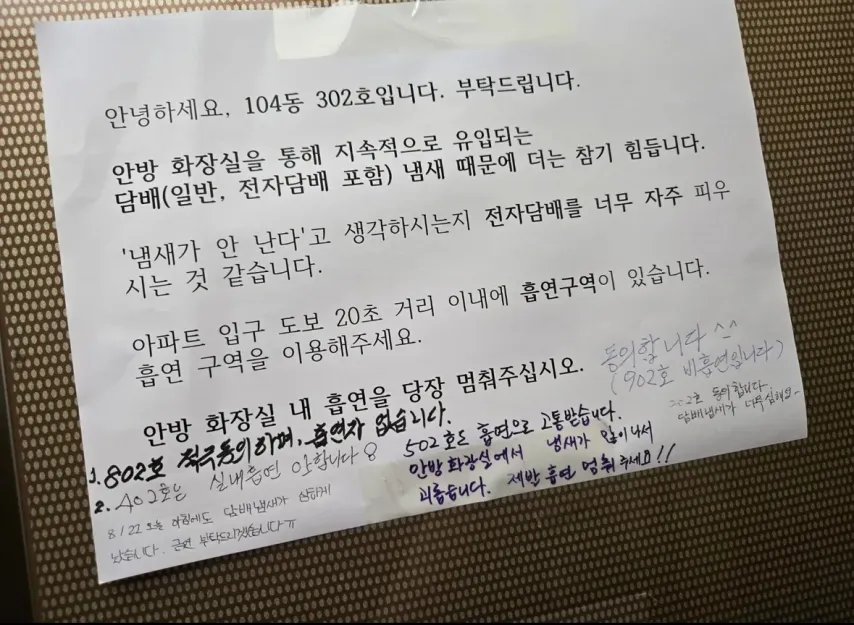 안녕하세요, 104동 302호입니다. 부탁드립니다.
안방 화장실을 통해 지속적으로 유입되는
담배(일반, 전자담배 포함) 냄새 때문에 더는 참기 힘듭니다.
'냄새가 안 난다'고 생각하시는지 전자담배를 너무 자주 피우
시는 것 같습니다.
아파트 입구 도보 20초 거리 이내에 흡연구역이 있습니다.
흡연 구역을 이용해주세요.
안방 화장실 내 흡연을 당장 멈춰주십시오.
동의합니다 ^^
(902호 비흡연입니다)
2호 동의합니다
담배냄새가 너무심해요~
1. 802호 적극동의하며, 흡연자 없습니다.
2. 402호는 실내흡연 안합니다
8/22 오늘 아침에도 담배냄새가 심하게
났습니다. 금연 부탁드리겠습니다ㅠ
502호도 흡연으로 고통받습니다.
안방 화장실에서 냄새가 많이 나서
괴롭습니다. 제발 흡연 멈춰 주세요!!